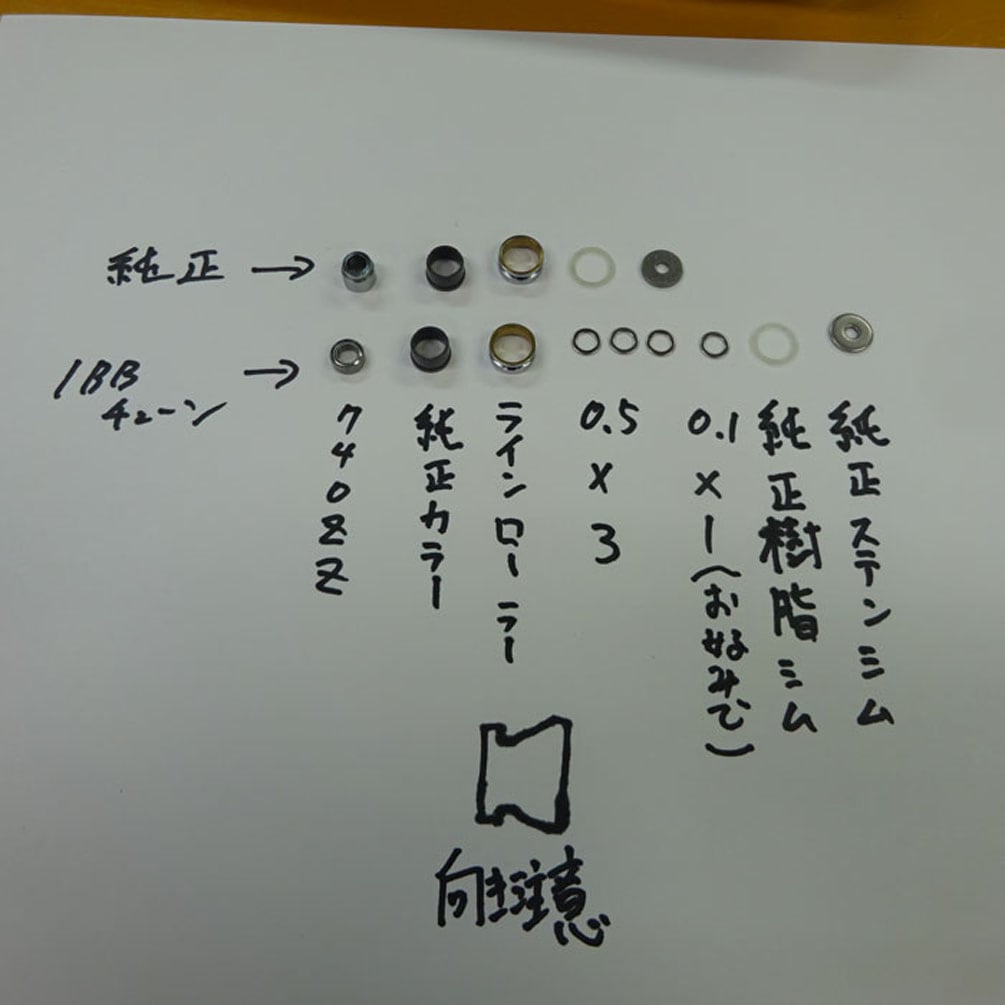 純正 →
1BB
チューン →
740ZZ
純正カラー
ラインローラー
0.5×3
0.1×1(お好みで)
純正樹脂ミム
純正ステンミム
向き注意